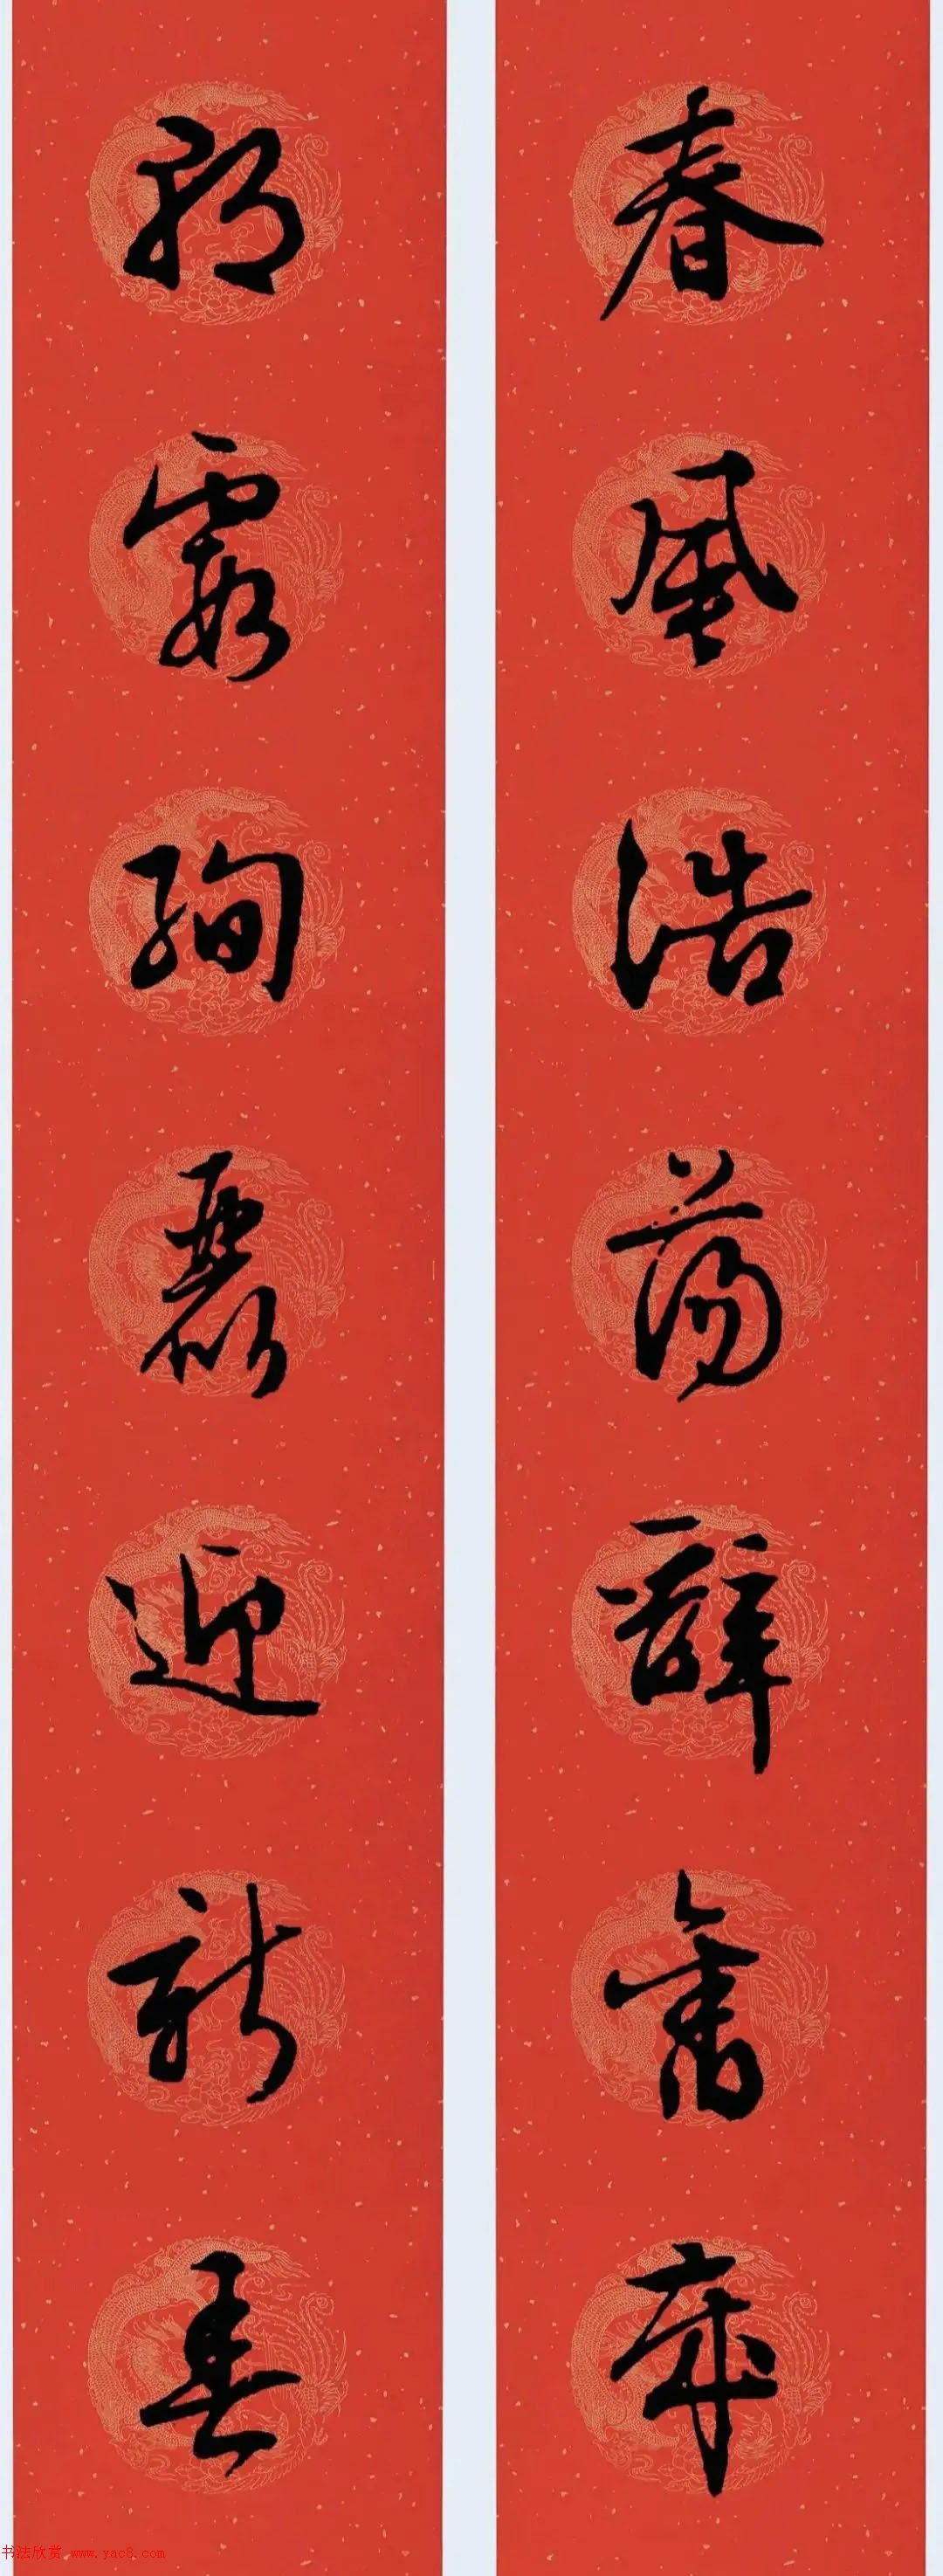 春風浩蕩辭舊歲
朝霞絢麗迎新春
书法欣赏 www.yac8.com